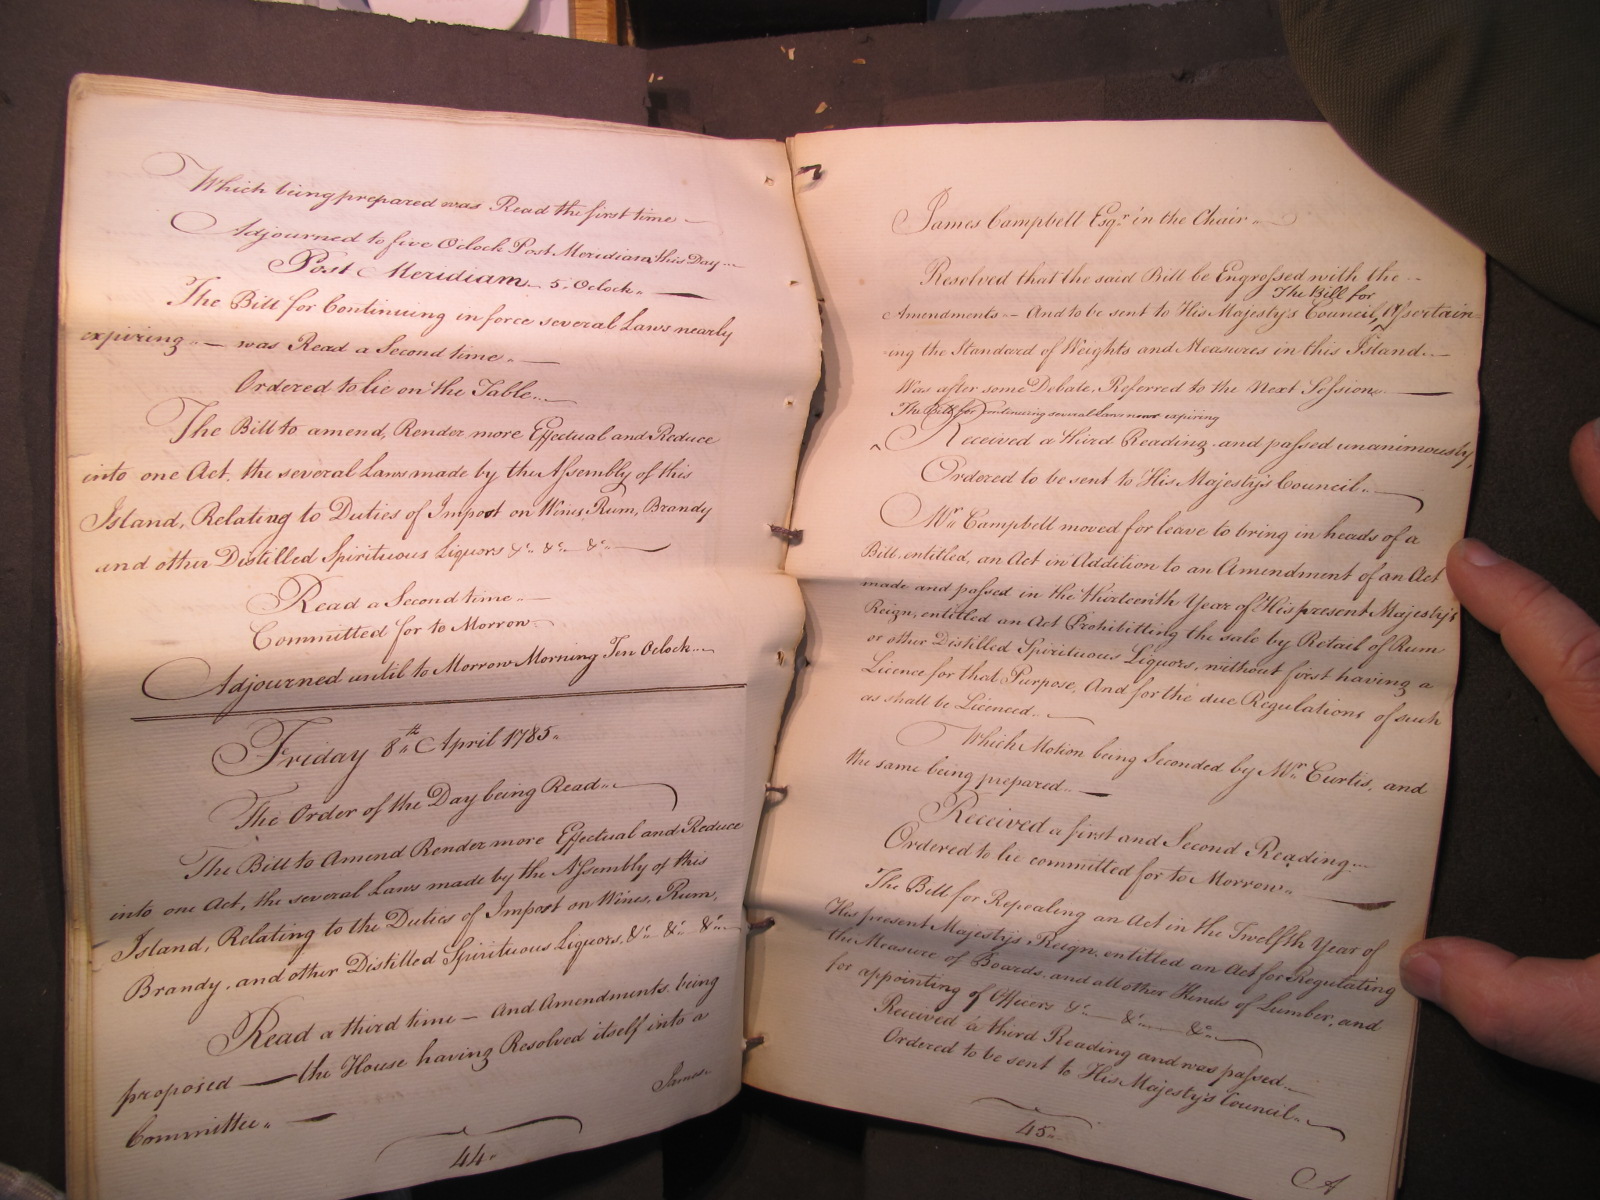 Which being prepared was Read the first time
Adjourned to five Oclock Post Meridiam this Day
Post Meridiam 5, Oclock
The Bill for Continuing in force several Laws nearly
expiring — was Read a Second time
Ordered to lie on the Table
The Bill to amend, Render more Effectual and Reduce
into one Act, the several Laws made by the Assembly of this
Island, Relating to Duties of Impost on Wines, Rum, Brandy
and other Distilled Spirituous Liquors &c. &c. &c.
Read a Second time
Committed for to Morrow
Adjourned until to Morrow Morning Ten Oclock
Friday 8th April 1785
The Order of the Day being Read
The Bill to Amend Render more Effectual and Reduce
into one Act, the several Laws made by the Assembly of this
Island, Relating to the Duties of Impost on Wines, Rum,
Brandy, and other Distilled Spirituous Liquors, &c. &c. &c.
Read a third time — And Amendments being
proposed — the House having Resolved itself into a
Committee
James
44
James Campbell Esqr. in the Chair
Resolved that the said Bill be Engrossed with the
The Bill for
Amendments — And to be sent to His Majesty's Council, ^ Assertain
ing the Standard of Weights and Measures in this Island
Was after some Debate, Referred to the Next Session
The Bill for Continuing several Laws near expiring
^ Received a third Reading and passed unanimously,
Ordered to be sent to His Majesty's Council
Mr. Campbell moved for leave to bring in heads of a
Bill, entitled, an Act in Addition to an Amendment of an Act
made and passed in the thirteenth Year of His present Majesty's
Reign, entitled an Act Prohibitting the sale by Retail of Rum
or other Distilled Spirituous Liquors, without first having a
Licence for that Purpose, And for the due Regulations of such
as shall be Licenced
Which Motion being Seconded by Mr. Curtis, and
the same being prepared
Received a first and Second Reading
Ordered to lie committed for to Morrow
The Bill for Repealing an Act in the Twelfth Year of
His present Majesty's Reign, entitled an Act for Regulating
the Measure of Boards, and all other Kinds of Lumber, and
for appointing of Officers &c. &c. &c.
Received a third Reading and was passed
Ordered to be sent to His Majesty's Council
45
A